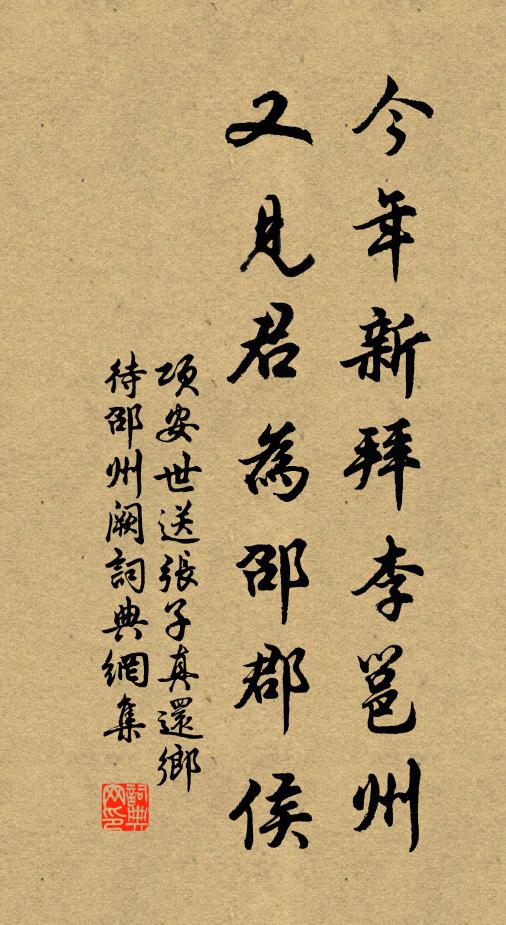 今年新拜李邕州
又見君為邵郡侯
項安世送張子真還鄉
待邵州闕詞典網集
詞典
网印